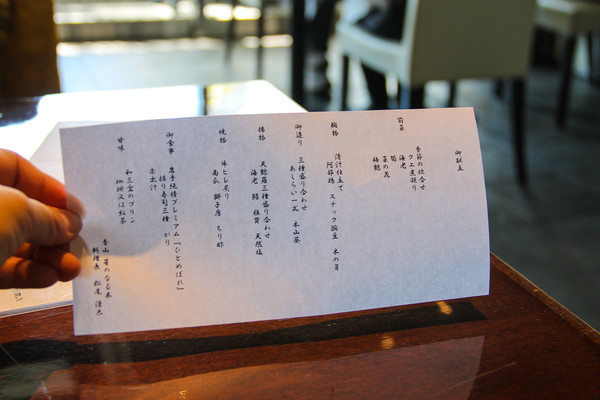 御献立
前菜
季節の炊合せ
クエ煮凝り
海老
筍
菜の花
梅麩
椀物
清汁仕立て
阿部鶏 スナック豌豆 木の芽
御造り
三種盛り合わせ
あしらい一式 本山葵
揚物
天麩羅三種盛り合わせ
海老 鱚 椎茸 天然塩
焼物
牛ヒレ炙り
南瓜 獅子唐 ちり酢
御食事
岩手純情プレミアム『ひとめぼれ』
握り寿司三種 がり
赤出汁
甘味
和三盆のプリン
珈琲又は紅茶
青山 星のなる木
料理長